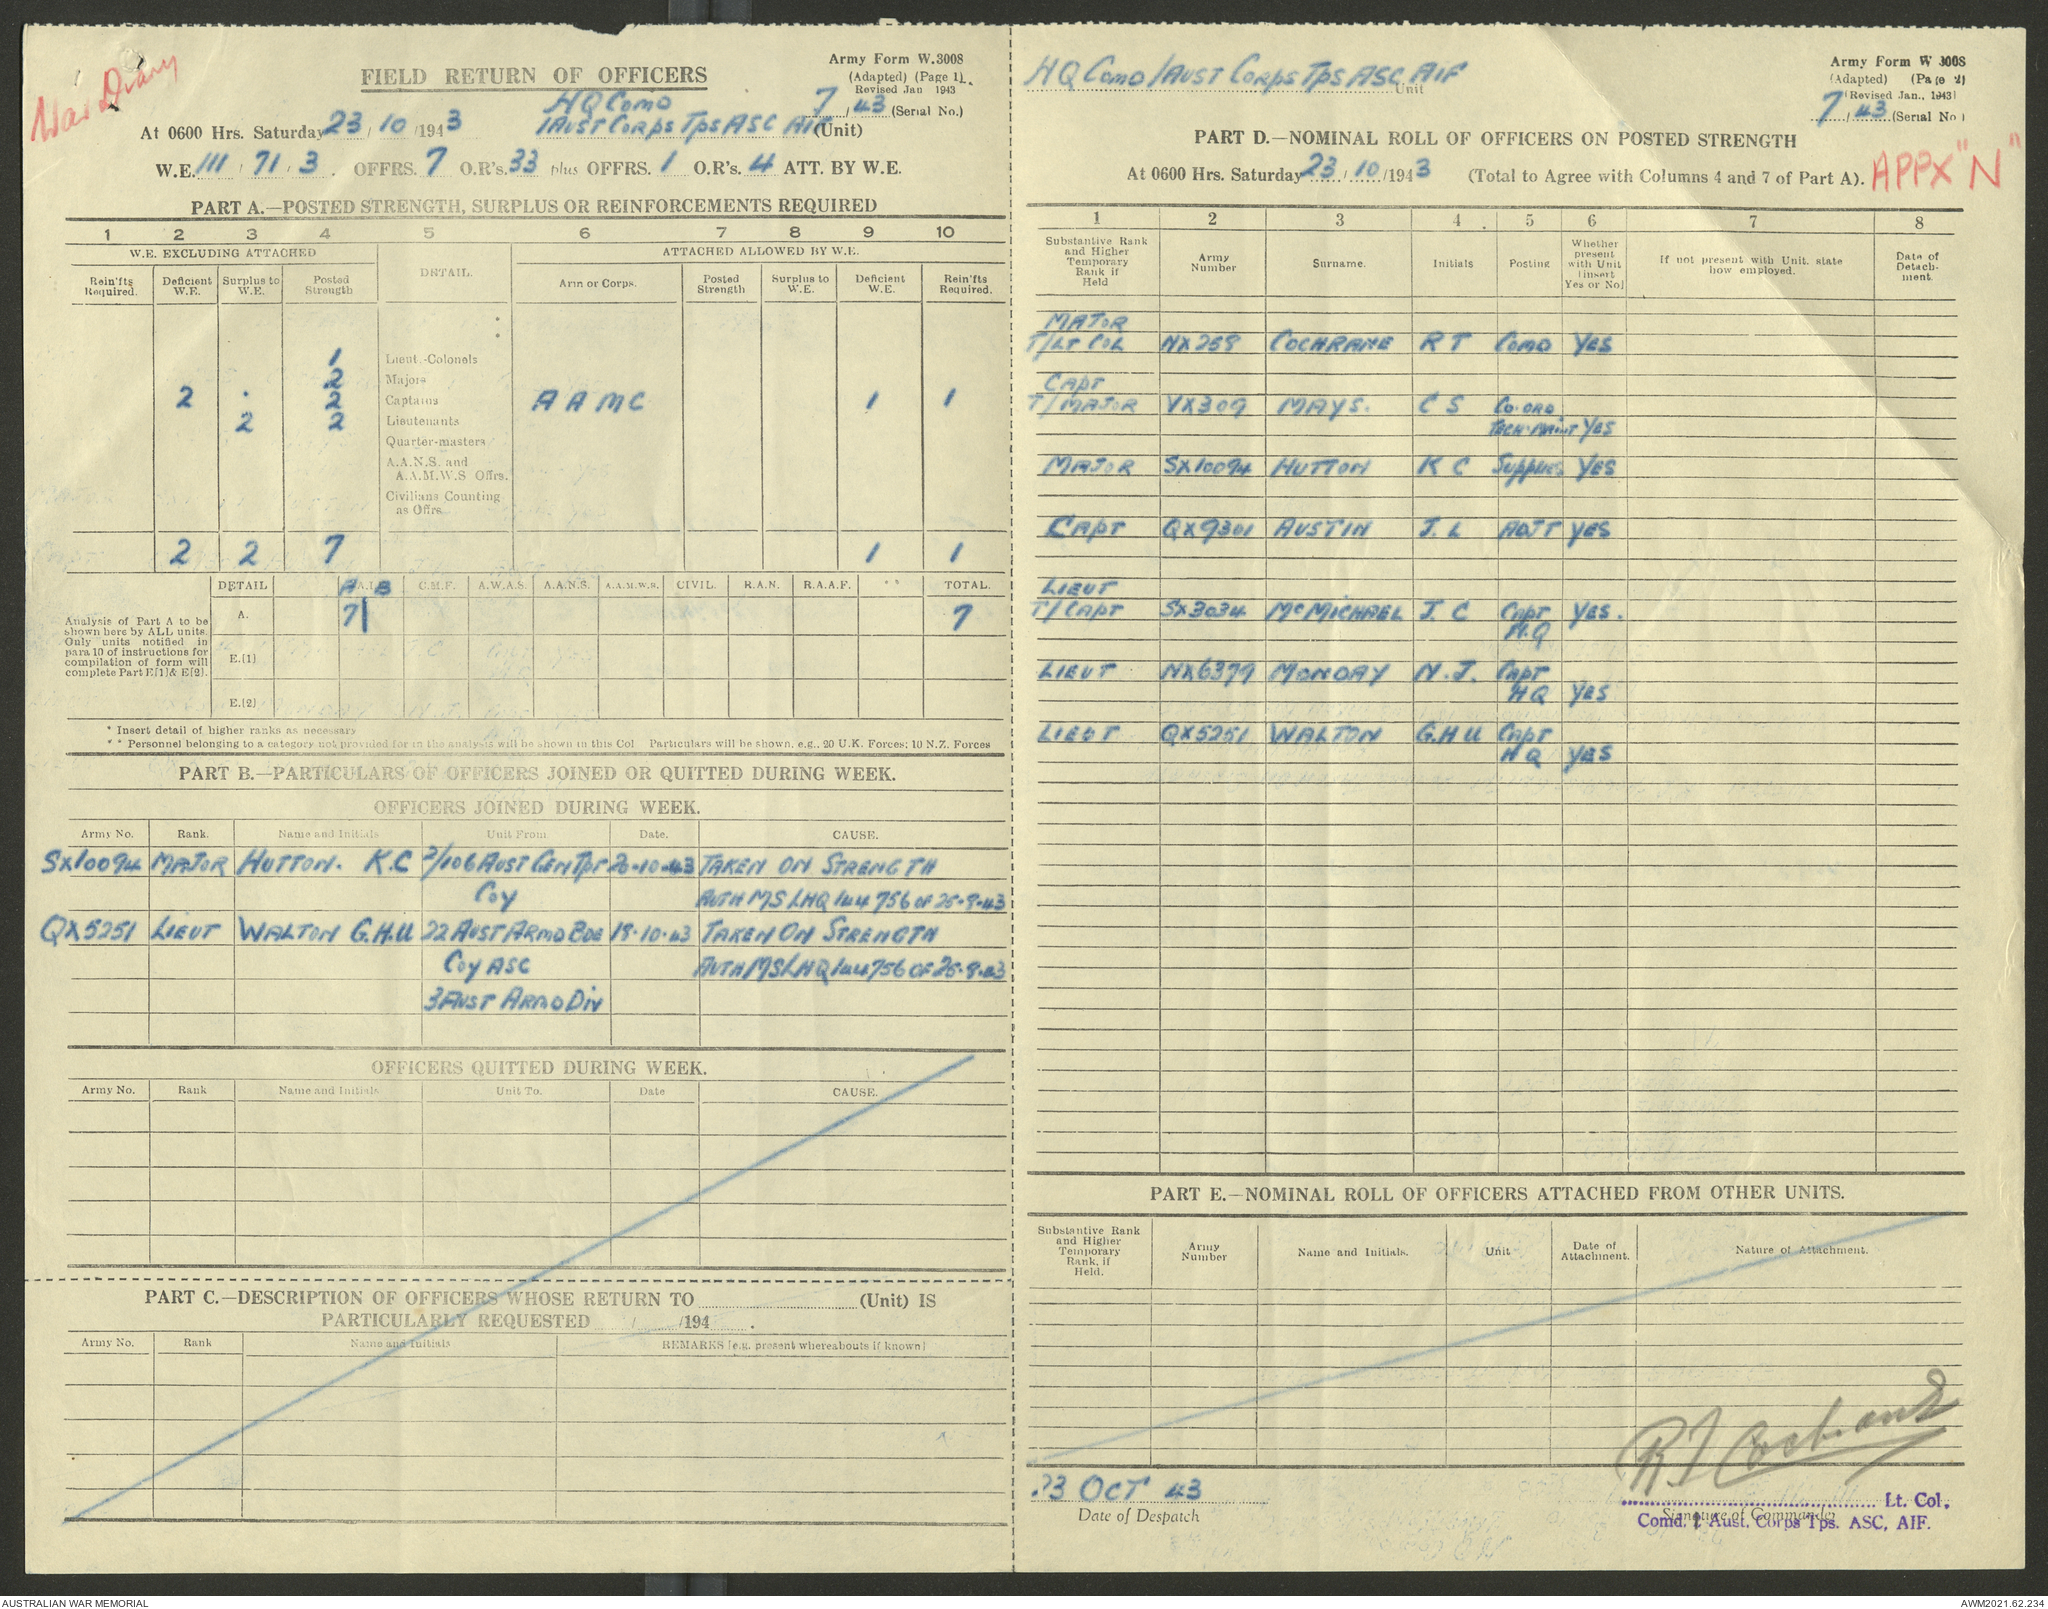 War Diary
FIELD RETURN OF OFFICERS
Army Form W.3008
(Adapted) (Page 1)
Revised Jan 1943
7 / 43 (Serial No.)
HQ Comd
At 0600 Hrs. Saturday 23 / 10 /1943 1 Aust Corps Tps ASC AIF (Unit)
W.E. 111 / 71 / 3 . OFFRS. 7 O.R's. 33 plus OFFRS. 1 O.R's. 4 ATT. BY W.E.
PART A.—POSTED STRENGTH, SURPLUS OR REINFORCEMENTS REQUIRED
1 2 3 4 5 6 7 8 9 10
W.E. EXCLUDING ATTACHED DETAIL. ATTACHED ALLOWED BY W.E.
Rein'fts Required. Deficient W.E. Surplus to W.E. Posted Strength Arm or Corps. Posted Strength Surplus to W.E. Deficient W.E. Rein'fts Required.
1 Lieut.-Colonels
2 Majors
2 . 2 Captains A A M C 1 1
2 2 Lieutenants
Quarter-masters
A.A.N.S. and
A.A.M.W.S Offrs.
Civilians Counting
as Offrs.
2 2 7 1 1
DETAIL A.I.F. C.M.F. A.W.A.S. A.A.N.S. A.A.M.W.S. CIVIL. R.A.N. R.A.A.F. ** TOTAL.
A B
A. 7 7
Analysis of Part A to be
shown here by ALL units.
Only units notified in
para 10 of instructions for
compilation of form will
complete Part E[1] & E[2].
E.(1)
E.(2)
* Insert detail of higher ranks as necessary
** Personnel belonging to a category not provided for in the analysis will be shown in this Col Particulars will be shown, e.g., 20 U.K. Forces; 10 N.Z. Forces
PART B.—PARTICULARS OF OFFICERS JOINED OR QUITTED DURING WEEK.
OFFICERS JOINED DURING WEEK.
Army No. Rank. Name and Initials Unit From Date. CAUSE.
SX10094 MAJOR HUTTON. K.C 2/106 Aust Gen Tpt 20-10-43 TAKEN ON STRENGTH
Coy AUTH MS LHQ 144756 OF 25-9-43
QX5251 LIEUT WALTON G.H.U 22 AUST ARMD BDE 18-10-43 TAKEN ON STRENGTH
Coy ASC AUTH MS LHQ 144756 OF 25-9-43
3 AUST ARMD DIV
OFFICERS QUITTED DURING WEEK.
Army No. Rank Name and Initials Unit To. Date CAUSE.
PART C.—DESCRIPTION OF OFFICERS WHOSE RETURN TO (Unit) IS
PARTICULARLY REQUESTED / /194 .
Army No. Rank Name and Initials REMARKS [e.g. present whereabouts if known]
HQ Comd 1 AUST CORPS Tps ASC, AIF Unit
Army Form W 3008
(Adapted) (Page 2)
(Revised Jan., 1943)
7 / 43 (Serial No.)
PART D.—NOMINAL ROLL OF OFFICERS ON POSTED STRENGTH
At 0600 Hrs. Saturday 23 / 10 /1943 (Total to Agree with Columns 4 and 7 of Part A).
APPX "N"
1 2 3 4 5 6 7 8
Substantive Rank and Higher Temporary Rank if Held Army Number Surname. Initials Posting Whether present with Unit (insert Yes or No) If not present with Unit, state how employed. Date of Detachment.
MAJOR
T/LT COL NX259 COCHRANE R T COMD YES
CAPT
T/MAJOR VX309 MAYS. C S CO-ORD
TECH-MAINT YES
MAJOR SX10094 HUTTON K C Supplies YES
CAPT QX9301 AUSTIN J. L ADJT YES
LIEUT
T/CAPT SX3034 McMICHAEL J. C Capt YES.
H.Q
LIEUT NX6379 MONDAY N. J. Capt
HQ YES
LIEUT QX5251 WALTON G.H U Capt
HQ YES
PART E.—NOMINAL ROLL OF OFFICERS ATTACHED FROM OTHER UNITS.
Substantive Rank and Higher Temporary Rank, if Held. Army Number Name and Initials. Unit Date of Attachment. Nature of Attachment.
R T Cochrane
23 OCT 43
Date of Despatch
Lt. Col.
Signature of Commander
Comd. 1 Aust. Corps Tps. ASC, AIF.
AUSTRALIAN WAR MEMORIAL
AWM2021.62.234